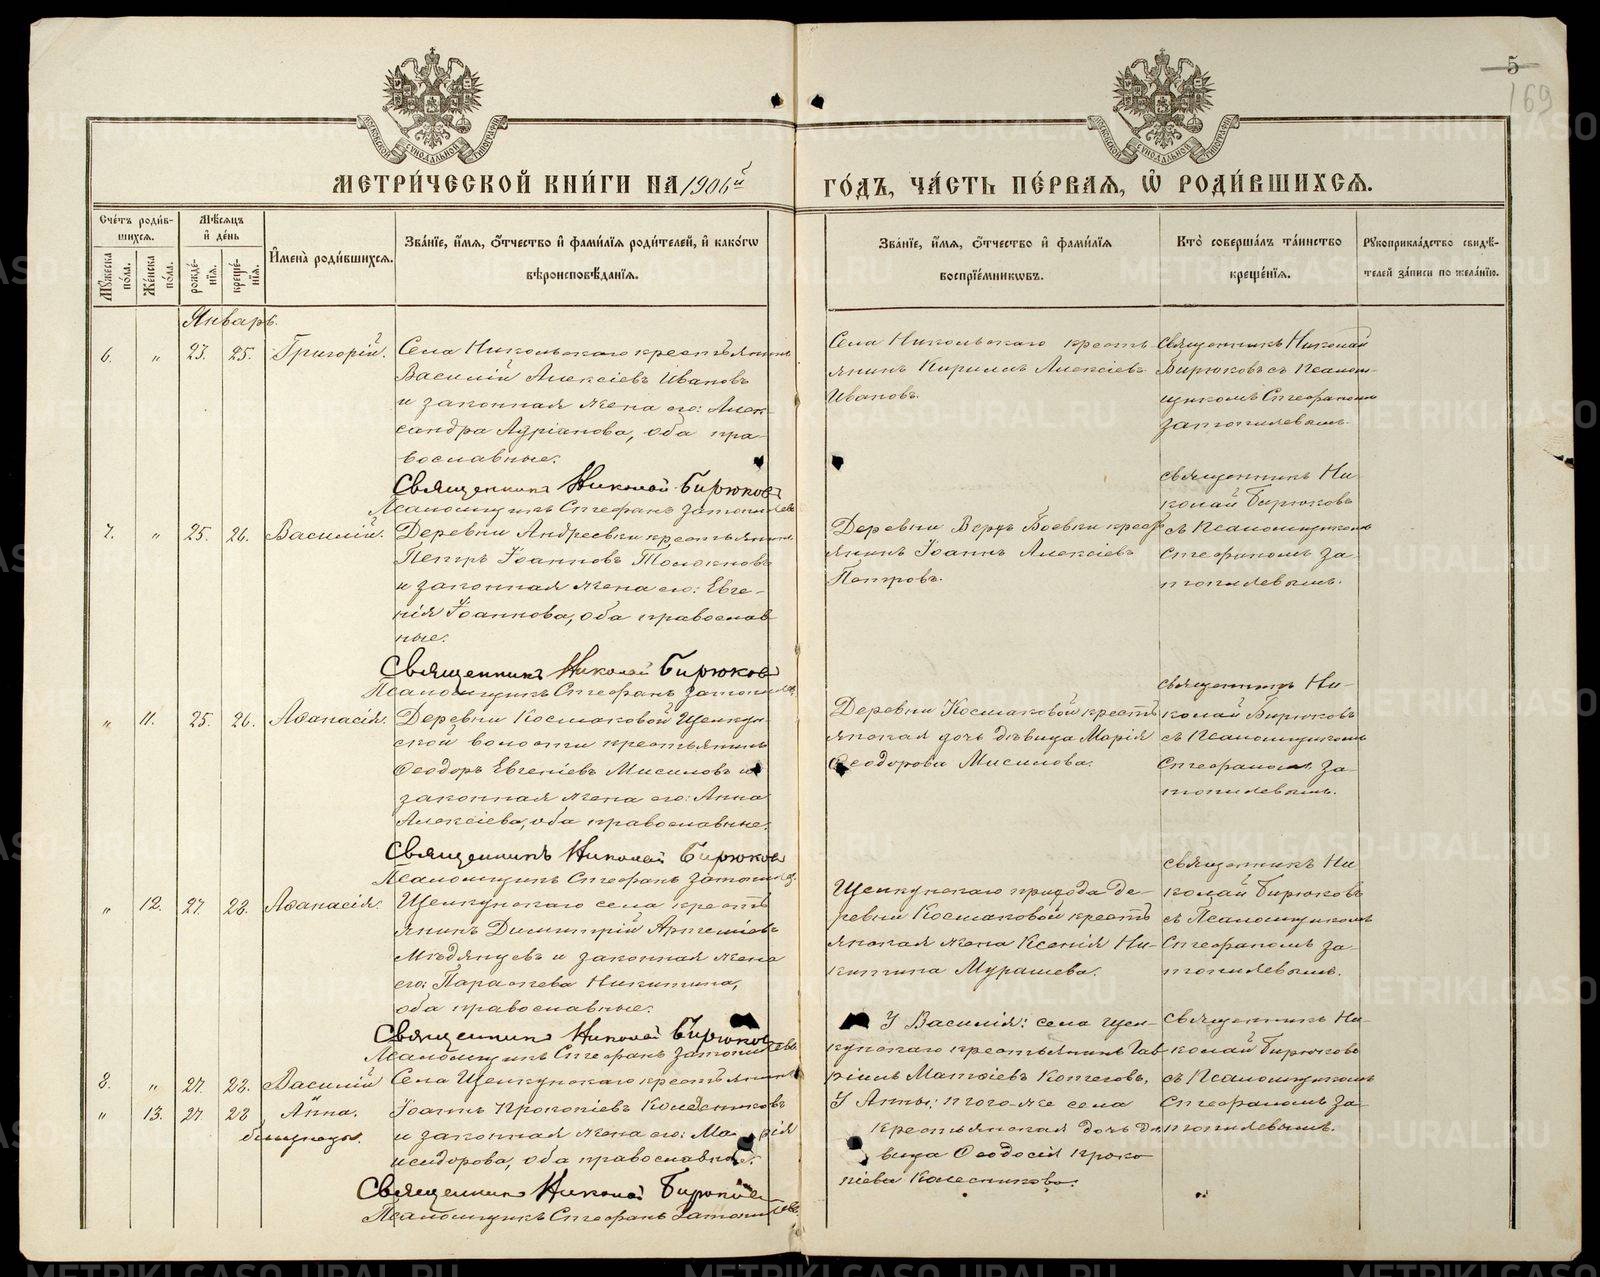 5
169
МЕТРИ́ЧЕСКОЙ КНИ́ГИ НА 1906й ГО́ДЪ, ЧА́СТЬ ПЕ́РВАЯ, Ѡ РОДИ́ВШИХСЯ.
Сче́тъ роди́вшихся.
Мѣ́сяцъ и де́нь
Имена̀ роди́вшихся.
Зва́нїе, и́мя, о́тчество и фами́лїя роди́телей, и како́гѡ вѣроисповѣ́данїя.
Зва́нїе, и́мя, о́тчество и фами́лїя воспрїе́мникѡвъ.
Кто̀ соверша́лъ та́инство креще́нїя.
Рукоприкла́дство свидѣ́телей за́писи по жела́нїю.
Му́жеска по́ла.
Же́нска по́ла.
рожде́нїя.
креще́нїя.
Январь.
6. „ 23. 25. Григорій.
Села Никольскаго крестьянинъ
Василій Алексіевъ Ивановъ
и законная жена его: Алек-
сандра Адріанова, оба пра-
вославные.
Священникъ Николай Бирюковъ
Псаломщикъ Стефанъ Затопляевъ
Села Никольскаго кресть-
янинъ Кириллъ Алексіевъ
Ивановъ.
Священникъ Николай
Бирюковъ съ Псалом-
щикомъ Стефаномъ
Затопляевымъ.
7. „ 25. 26. Василій.
Деревни Андреевки крестьянинъ
Петръ Іоанновъ Толокновъ
и законная жена его: Евге-
нія Іоаннова, оба православ-
ные.
Священникъ Николай Бирюковъ
Псаломщикъ Стефанъ Затопляевъ
Деревни Верхъ Боевки кресть-
янинъ Іоаннъ Алексіевъ
Петровъ.
Священникъ Ни-
колай Бирюковъ
съ Псаломщикомъ
Стефаномъ За-
топляевымъ.
„ 11. 25. 26. Аѳанасія.
Деревни Космаковой Щелкун-
ской волости крестьянинъ
Ѳеодоръ Евгеніевъ Мисиловъ и
законная жена его: Анна
Алексіева, оба православные.
Священникъ Николай Бирюковъ
Псаломщикъ Стефанъ Затопляевъ
Деревни Космаковой кресть-
янская дочь дѣвица Марія
Ѳеодорова Мисилова.
Священникъ Ни-
колай Бирюковъ
съ Псаломщикомъ
Стефаномъ За-
топляевымъ.
„ 12. 27. 28. Аѳанасія.
Щелкунскаго села кресть-
янинъ Димитрій Артеміевъ
Мѣдянцевъ и законная жена
его: Параскева Никитина,
оба православные.
Священникъ Николай Бирюковъ
Псаломщикъ Стефанъ Затопляевъ
Щелкунскаго прихода де-
ревни Космаковой кресть-
янская жена Ксенія Ни-
китина Мурашева.
Священникъ Ни-
колай Бирюковъ
съ Псаломщикомъ
Стефаномъ За-
топляевымъ.
8. „ 27. 28. Василій
„ 13. 27. 28 Анна.
близнецы.
Села Щелкунскаго крестьянинъ
Іоаннъ Прокопіевъ Колесниковъ
и законная жена его: Марія
Исидорова, оба православные.
Священникъ Николай Бирюковъ
Псаломщикъ Стефанъ Затопляевъ
У Василія: села Щел-
кунскаго крестьянинъ Гав-
ріилъ Матѳіевъ Котеговъ,
У Анны: того-же села
крестьянская дочь дѣ-
вица Ѳеодосія Проко-
піева Колесникова.
Священникъ Ни-
колай Бирюковъ
съ Псаломщикомъ
Стефаномъ За-
топляевымъ.
METRIKI.GASO-URAL.RU